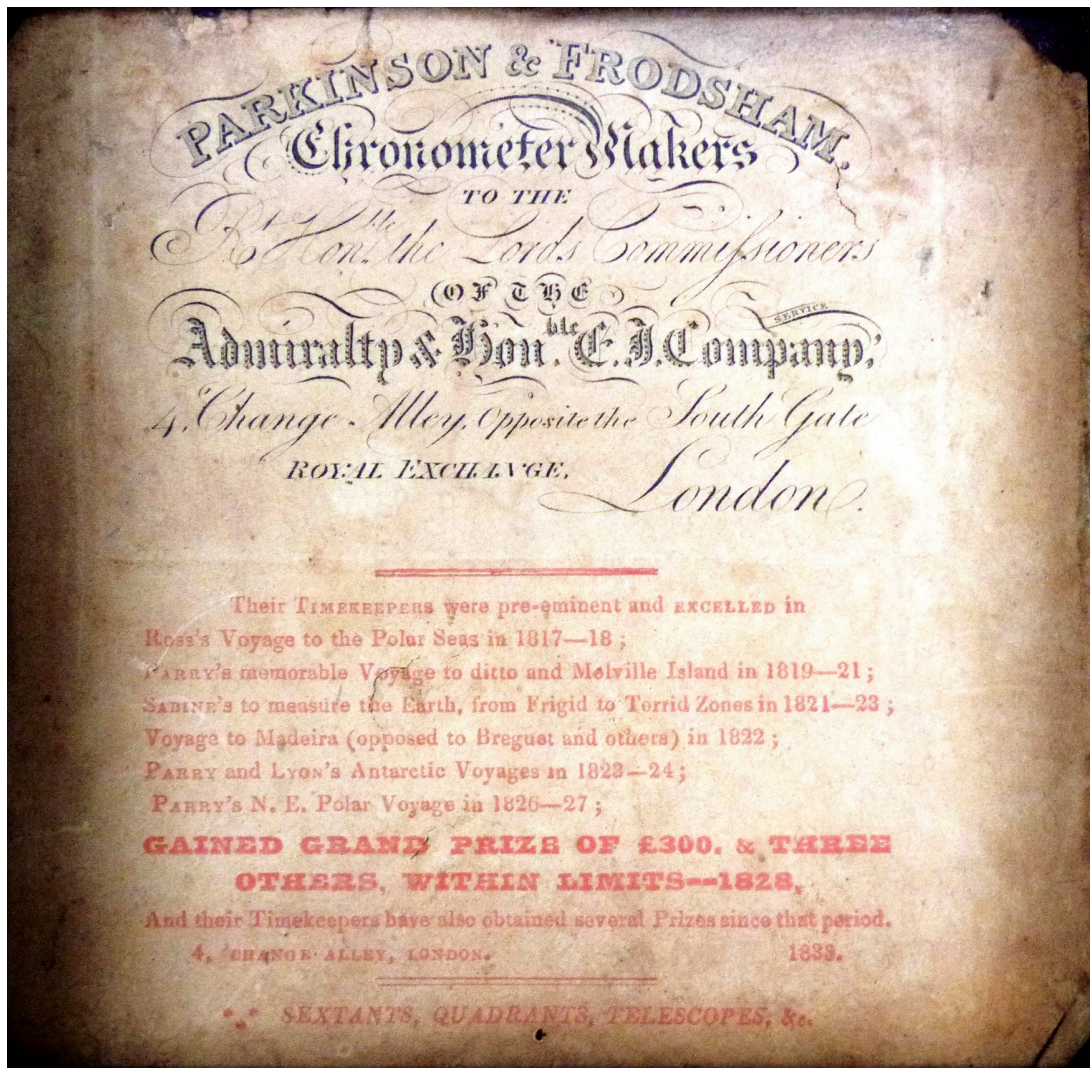 PARKINSON & FRODSHAM.
Chronometer Makers
TO THE
Rt. Honble. the Lords Commissioners
OF THE
SERVICE
Admiralty & Honble. E.I. Company,
4, 'Change Alley, Opposite the South Gate
ROYAL EXCHANGE,
London.
Their TIMEKEEPERS were pre-eminent and EXCELLED in
Ross's Voyage to the Polar Seas in 1817—18;
PARRY'S memorable Voyage to ditto and Melville Island in 1819—21;
SABINE'S to measure the Earth, from Frigid to Torrid Zones in 1821—23;
Voyage to Madeira (opposed to Breguet and others) in 1822;
PARRY and LYON'S Antarctic Voyages in 1823—24;
PARRY'S N. E. Polar Voyage in 1826—27;
GAINED GRAND PRIZE OF £300. & THREE
OTHERS, WITHIN LIMITS--1828,
And their Timekeepers have also obtained several Prizes since that period.
4, 'CHANGE ALLEY, LONDON. 1833.
SEXTANTS, QUADRANTS, TELESCOPES, &c.